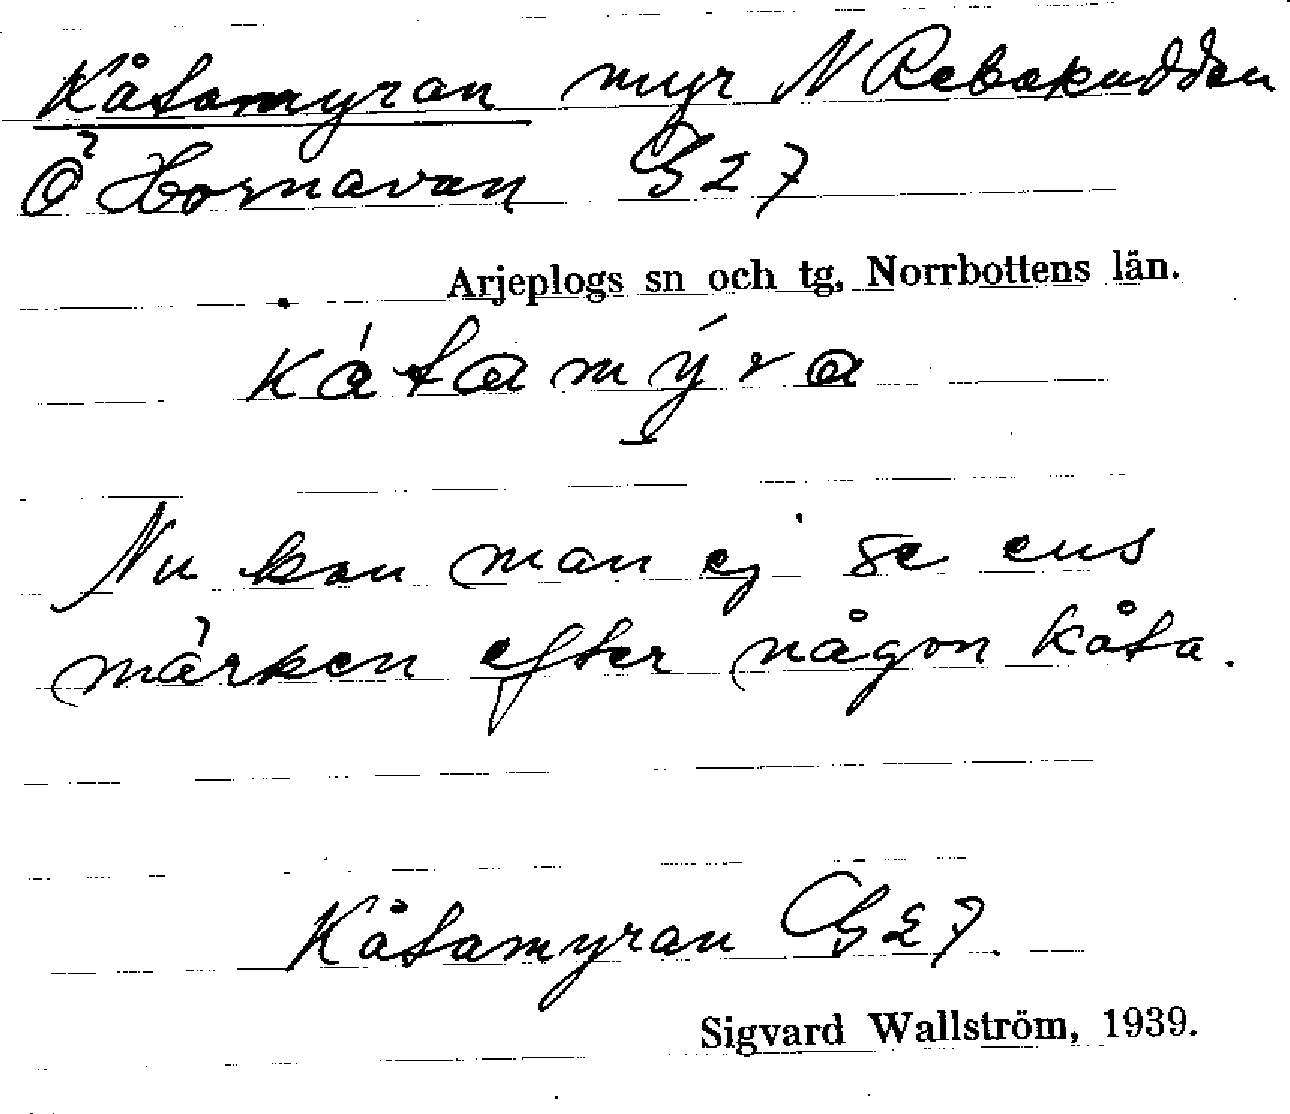 Kåtamyran myr N Rebakudden
Ö Hornavan G27
Arjeplogs sn och tg, Norrbottens län.
kåtamýra
Nu kan man ej se ens
märken efter någon kåta.
Kåtamyran G27.
Sigvard Wallström, 1939.